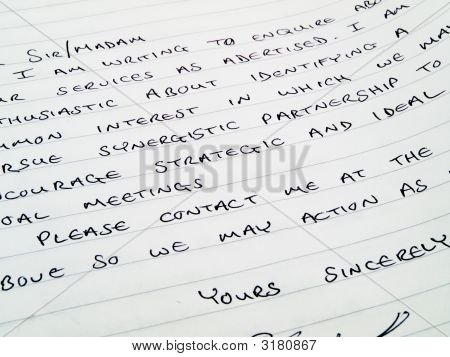 SIR/MADAM
I AM WRITING TO ENQUIRE ABO
UR SERVICES AS ADERTISED. I AM
THUSIASTIC ABOUT IDENTIFYING A
MMON INTEREST IN WHICH WE MAY
RSUE SYNERGISTIC PARTNERSHIP TO
COURAGE STRATEGIC AND IDEAL
OAL MEETINGS
PLEASE CONTACT ME AT THE
BOVE SO WE MAY ACTION AS
YOURS SINCERELY
Bigstock
Image ID: 3180867
bigstock.com